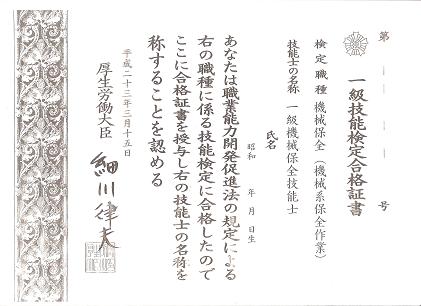 第 号
一級技能検定合格証書
検定職種 機械保全(機械系保全作業)
技能士の名称 一級機械保全技能士
氏名
昭和 年 月 日生
あなたは職業能力開発促進法の規定による
右の職種に係る技能検定に合格したので
ここに合格証書を授与し右の技能士の名称を
称することを認める
平成二十三年三月十五日
厚生労働大臣 細川律夫